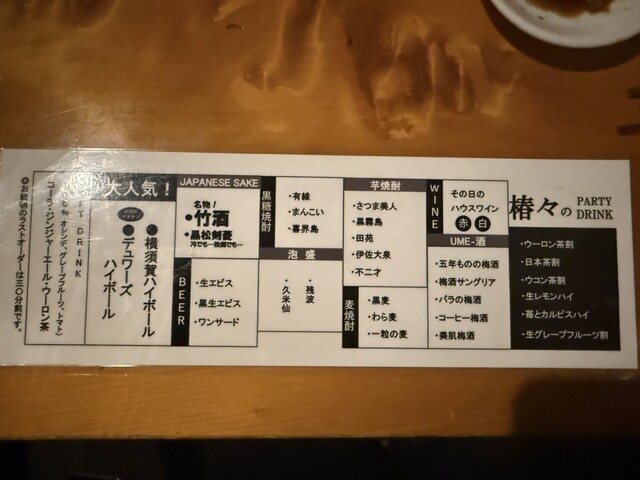 椿々の
PARTY
DRINK
・ウーロン茶割
・日本茶割
・ウコン茶割
・生レモンハイ
・苺とカルピスハイ
・生グレープフルーツ割
WINE
その日の
ハウスワイン
赤 白
UME-酒
・五年ものの梅酒
・梅酒サングリア
・バラの梅酒
・コーヒー梅酒
・美肌梅酒
芋焼酎
・さつま美人
・黒霧島
・田苑
・伊佐大泉
・不二才
麦焼酎
・黒麦
・わら麦
・一粒の麦
黒糖焼酎
・有線
・まんこい
・喜界島
泡盛
・残波
・久米仙
JAPANESE SAKE
名物!
・竹酒
・黒松剣菱
BEER
・生エビス
・黒生エビス
・ワンサード
大人気!
●横須賀ハイボール
●デュワーズ
ハイボール
FT DRINK
オレンヂ、グレープフルーツ、トマト)
コーラ・ジンジャーエール・ウーロン茶
◎お飲物のラストオーダーは三〇分前です。